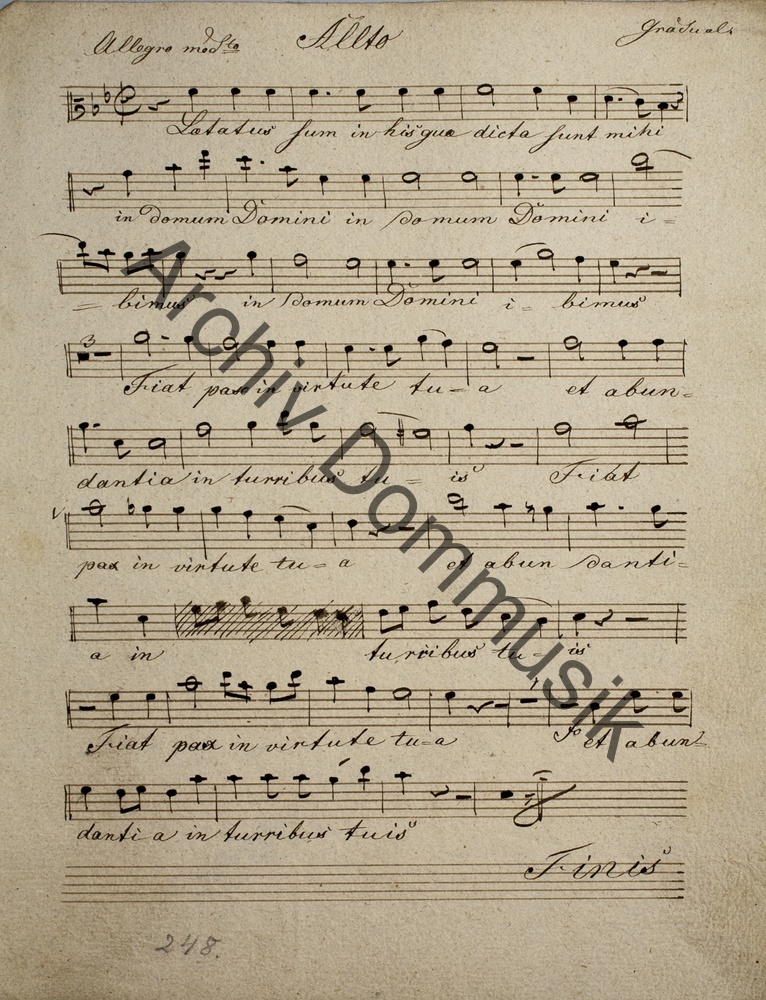 Allegro modto Allto Gradual
Lætatus sum in his quæ dicta sunt mihi
in domum Domini in domum Domini i =
= bimus in domum Domini i = bimus
3
Fiat pax in virtute tu = a et abun =
dantia in turribus tu = is Fiat
pax in virtute tu = a et abun danti =
a in turribus tu - is
Fiat pax in virtute tu = a et abun
danti a in turribus tuis
Finis
248.
Archiv Dommusik